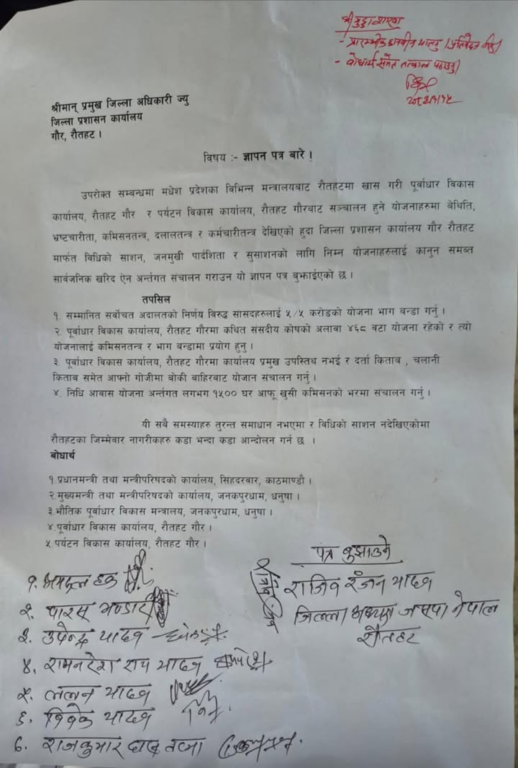 श्रीमान् प्रमुख जिल्ला अधिकारी ज्यु
जिल्ला प्रशासन कार्यालय
गौर, रौतहट ।
विषय :- ज्ञापन पत्र बारे !
उपरोक्त सम्बन्धमा मधेश प्रदेशका बिभिन्न मन्त्रालयबाट रौतहटमा खास गरी पूर्वाधार विकास
कार्यालय, रौतहट गौर र पर्यटन विकास कार्यालय, रौतहट गौरबाट सञ्चालन हुने योजनाहरुमा बेथिति,
भ्रष्टचारीता, कमिसनतन्त्र, दलालतन्त्र र कर्मचारीतन्त्र देखिएको हुदा जिल्ला प्रशासन कार्यालय गौर रौतहट
मार्फत बिधिको साशन, जनमुखी पार्दशिता र सुसाशनको लागि निम्न योजनाहरुलाई कानुन सम्मत
सार्वजनिक खरिद ऐन अन्तर्गत संचालन गराउन यो ज्ञापन पत्र बुझाईएको छ ।
तपसिल
१. सम्मानित सर्वोचत अदालतको निर्णय बिरुद्ध सांसदहरुलाई ५/५ करोडको योजना भाग बन्डा गर्नु ।
२. पूर्वाधार विकास कार्यालय, रौतहट गौरमा कथित संसदीय कोषको अलावा ४६८ वटा योजना रहेको र त्यो
योजनालाई कमिसनतन्त्र र भाग बन्डामा प्रयोग हुनु ।
३ पूर्वाधार विकास कार्यालय, रौतहट गौरमा कार्यालय प्रमुख उपस्तिथ नभई र दर्ता किताब , चलानी
किताब समेत आफ्नो गोजीमा बोकी बाहिरबाट योजान संचालन गर्नु ।
४. निधि आवास योजना अन्तर्गत लगभग १५०० घर आफू खुसी कमिसनको भरमा संचालन गर्नु ।
यी सबै समस्याहरु तुरन्त समाधान नभएमा र बिधिको साशन नदेखिएकोमा
रौतहटका जिम्मेवार नागरीकहरु कडा भन्दा कडा आन्दोलन गर्न छ ।
बोधार्थ
१ प्रधानमन्त्री तथा मन्त्रीपरिषदको कार्यालय, सिंहदरबार, काठमाण्डौ ।
२ मुख्यमन्त्री तथा मन्त्रीपरिषदको कार्यालय, जनकपुरधाम, धनुषा ।
३ भौतिक पूर्वाधार विकास मन्त्रालय, जनकपुरधाम, धनुषा ।
४ पूर्वाधार विकास कार्यालय, रौतहट गौर ।
५ पर्यटन विकास कार्यालय, रौतहट गौर ।
पत्र बुझाउने
राजिव रंजन यादव
जिल्ला अध्यक्ष जसपा नेपाल
रौतहट
१. हक
२. पारस
३. उपेन्द्र यादव
४. रामनरेश राय यादव
५. ललन यादव
६. विवेक यादव
७. राजकुमार दास तत्मा